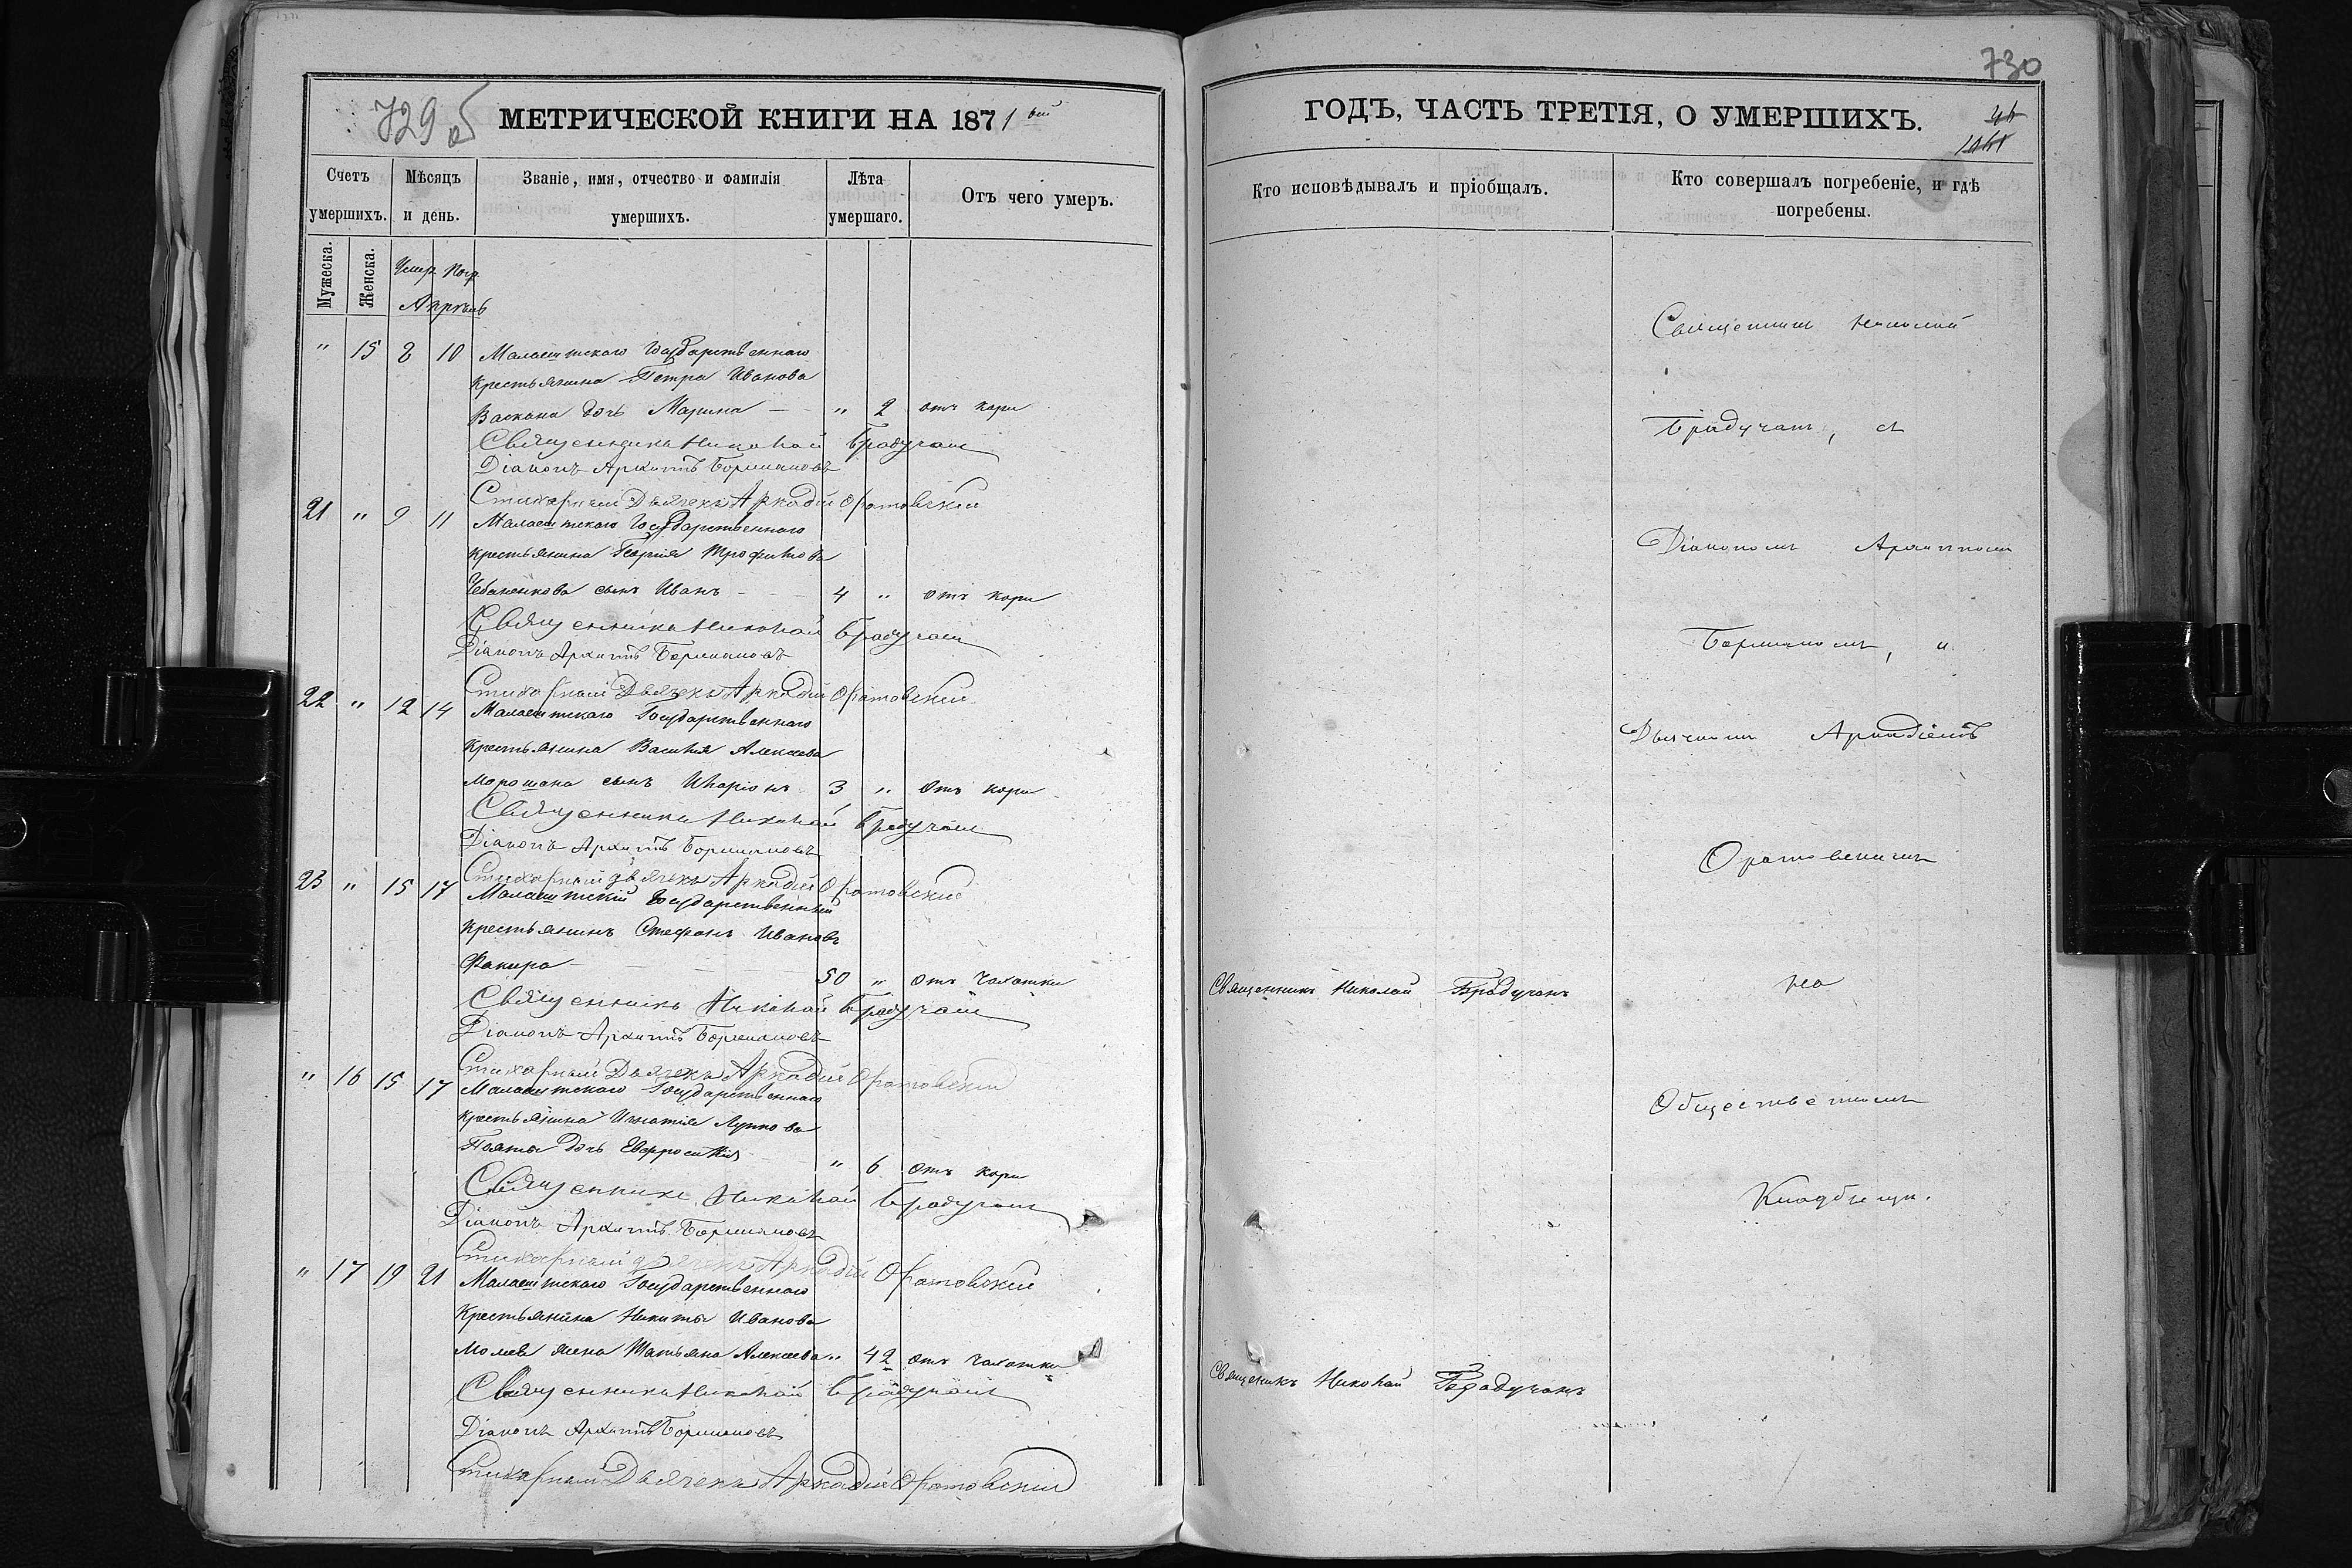 729 об МЕТРИЧЕСКОЙ КНИГИ НА 1871 вый
Счетъ умершихъ.
Мѣсяцъ и день.
Званіе, имя, отчество и фамилія умершихъ.
Лѣта умершаго.
Отъ чего умеръ.
Мужеска. Женска. Умер. Погр.
Апрѣль
" 15 8 10 Малаештскаго Государственнаго
Крестьянина Петра Иванова
Васкана дочь Марина — " 2 отъ кори
Священникъ Николай Брадучанъ
Діаконъ Архиппъ
Стихарный Дьячекъ Аркадій Оратовскій
21 " 9 11 Малаештскаго Государственнаго
крестьянина Георгія Трофимова
Чебаненкова сынъ Иванъ - - - 4 " отъ кори
Священникъ Николай Брадучанъ
Діаконъ Архиппъ
Стихарный Дьячекъ Аркадій Оратовскій
22 " 12 14 Малаештскаго Государственнаго
Крестьянина Василія Алексеева
Морошана сынъ Иларіонъ 3 " отъ кори
Священникъ Николай Брадучанъ
Діаконъ Архиппъ
Стихарный дьячекъ Аркадій Оратовскій
23 " 15 17 Малаештскій Государственный
Крестьянинъ Стефанъ Ивановъ
Факира 50 " отъ чахотки
Священникъ Николай Брадучанъ
Діаконъ Архиппъ
Стихарный Дьячекъ Аркадій Оратовскій
" 16 15 17 Малаештскаго Государственнаго
Крестьянина Игнатія Лупкова
дочь Евфросинія " 6 отъ кори
Священникъ Николай Брадучанъ
Діаконъ Архиппъ
Стихарный дьячекъ Аркадій Оратовскій
" 17 19 21 Малаештскаго Государственнаго
Крестьянина Никиты Иванова
жена Татьяна Алексеева " 42 отъ чахотки
Священникъ Николай Брадучанъ
Діаконъ Архиппъ
Стихарный Дьячекъ Аркадій Оратовскій
730
ГОДЪ, ЧАСТЬ ТРЕТІЯ, О УМЕРШИХЪ.
Кто исповѣдывалъ и пріобщалъ.
Кто совершалъ погребеніе, и гдѣ
погребены.
Священникъ Николай
Брадучанъ, съ
Діакономъ Архиппомъ
Дьячкомъ Аркадіемъ
Оратовскимъ
Священникъ Николай Брадучанъ на
Общественномъ
Кладбищѣ.
Священикъ Николай Брадучанъ